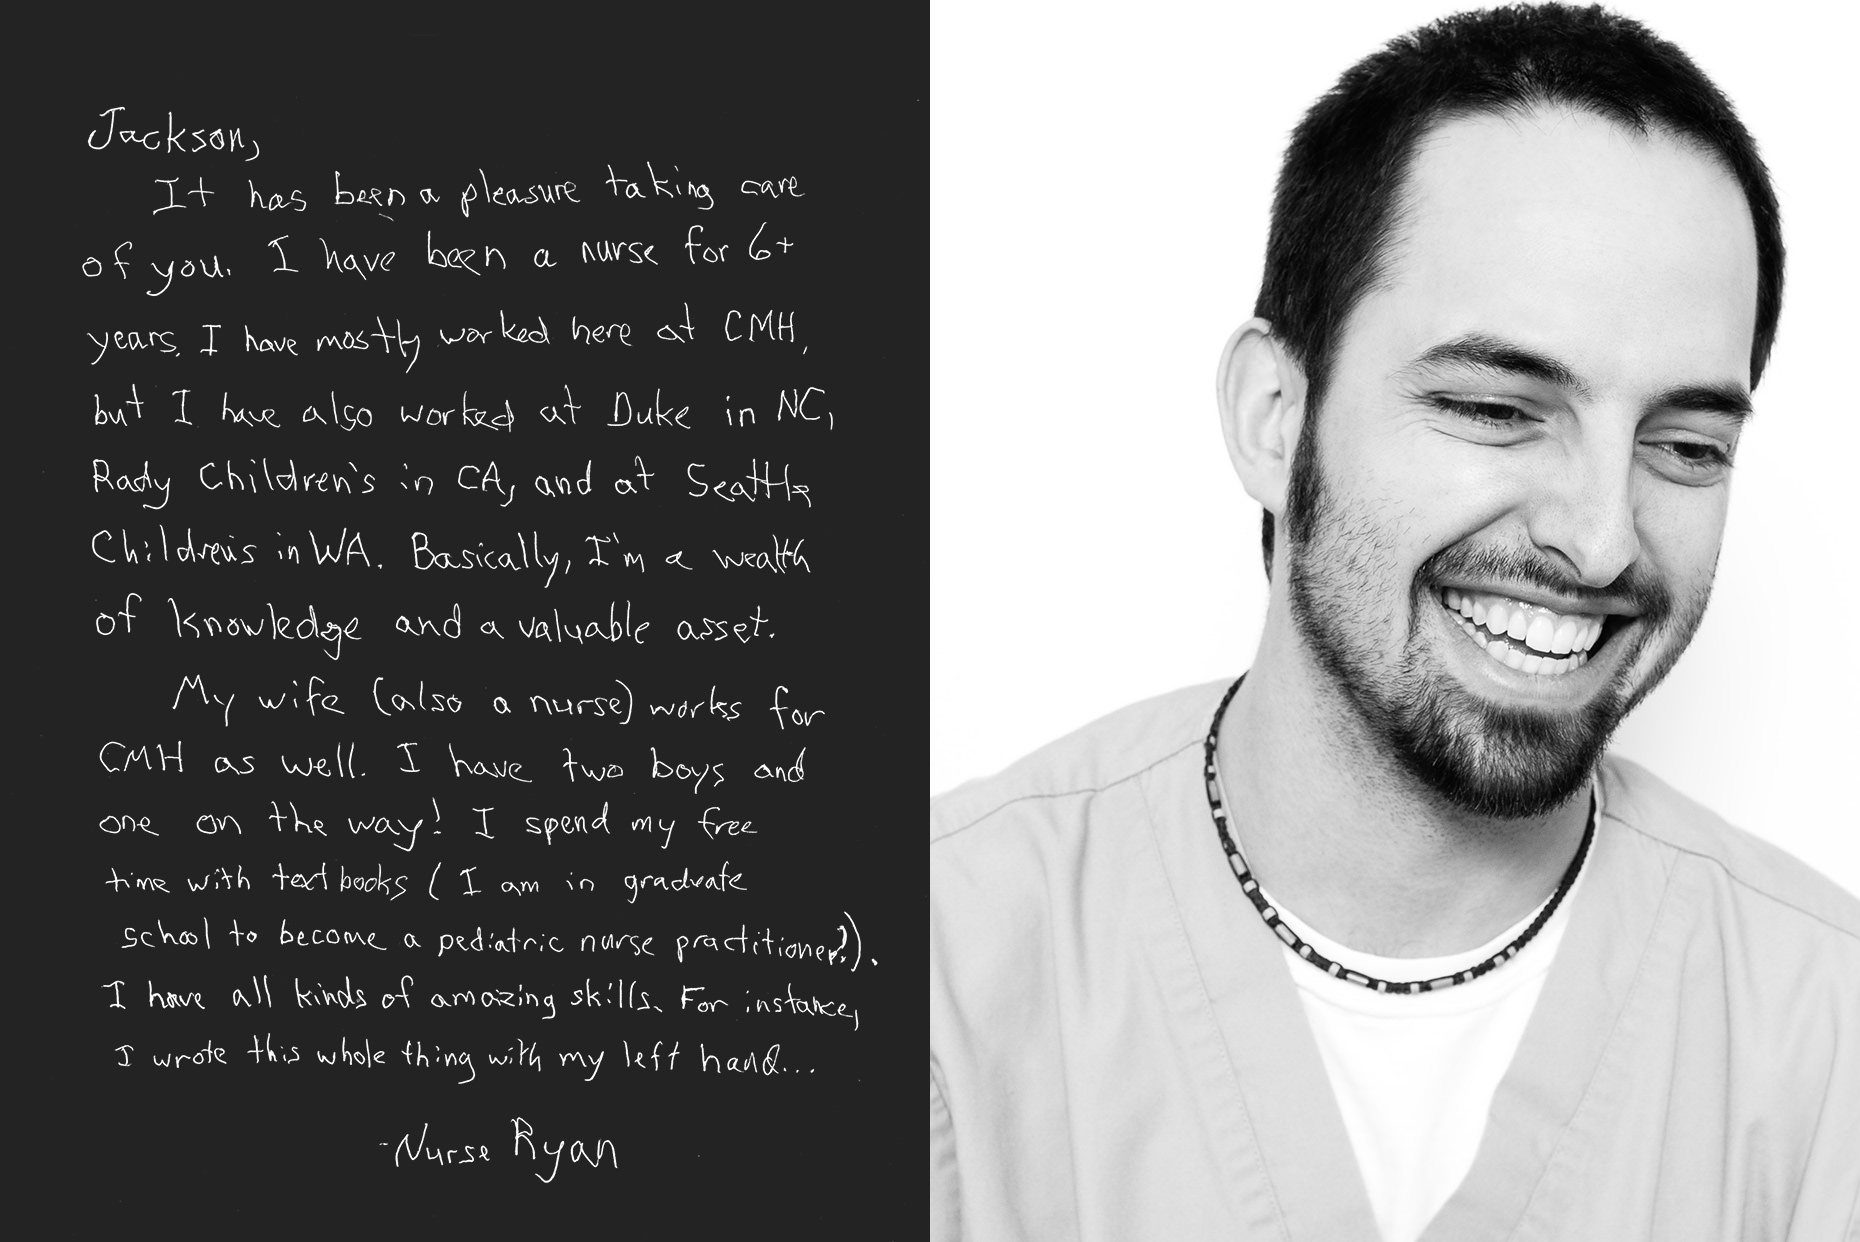 Jackson,
It has been a pleasure taking care
of you. I have been a nurse for 6+
years. I have mostly worked here at CMH,
but I have also worked at Duke in NC,
Rady Children's in CA, and at Seattle
Children's in WA. Basically, I'm a wealth
of knowledge and a valuable asset.
My wife (also a nurse) works for
CMH as well. I have two boys and
one on the way! I spend my free
time with textbooks (I am in graduate
school to become a pediatric nurse practitioner!).
I have all kinds of amazing skills. For instance,
I wrote this whole thing with my left hand...
-Nurse Ryan